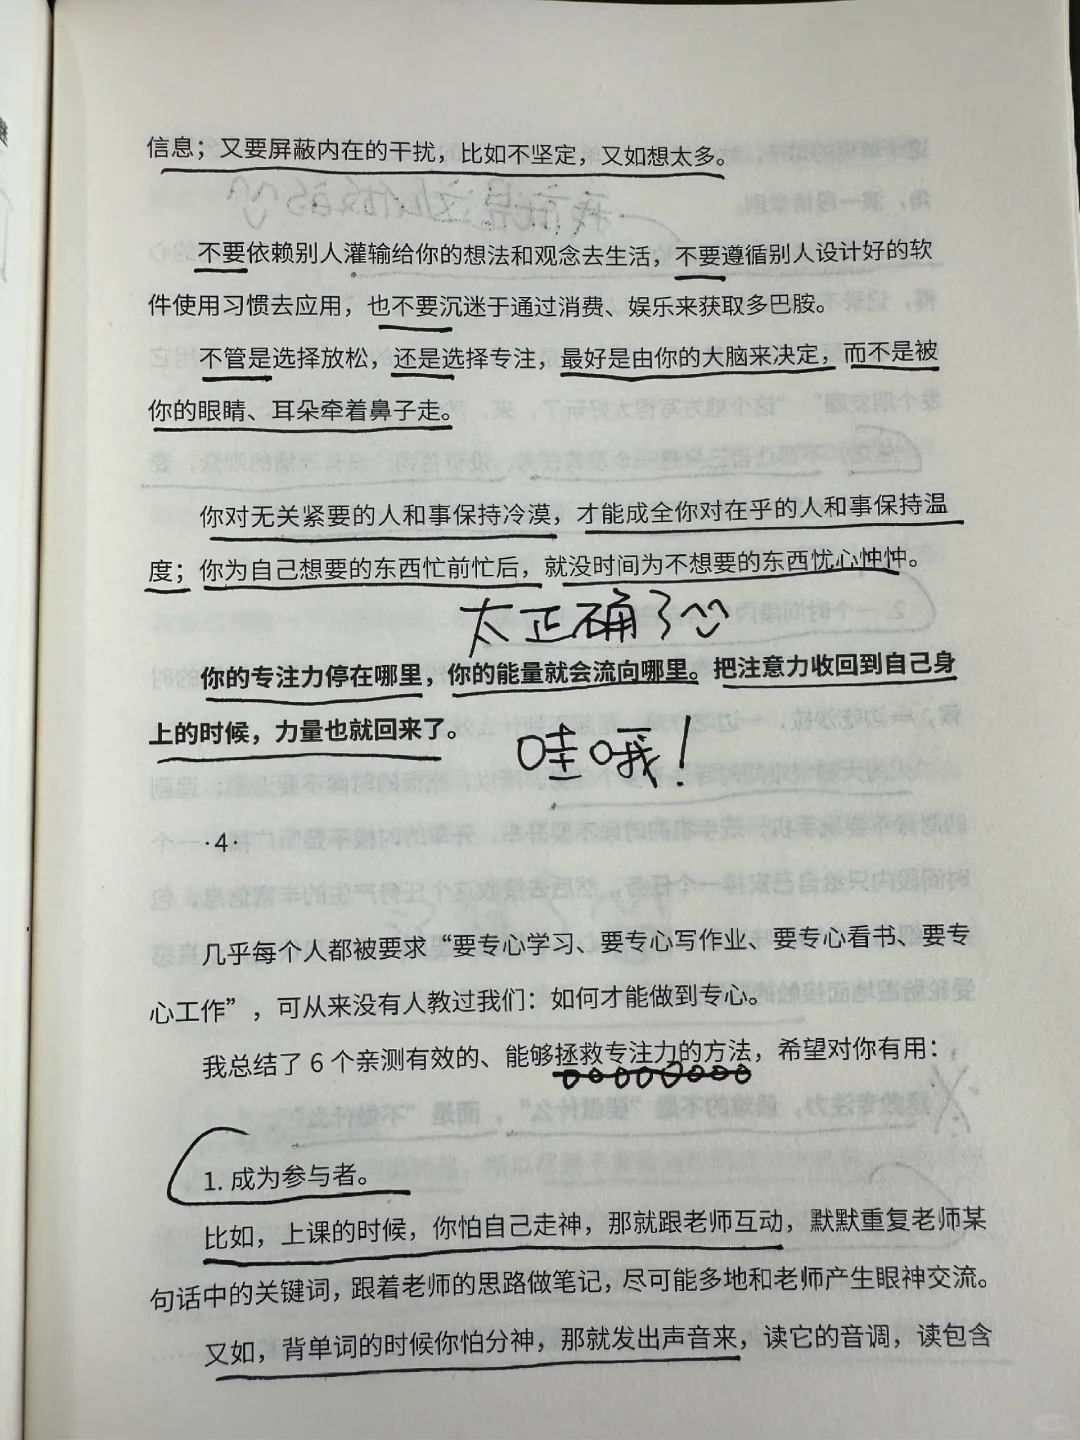 信息；又要屏蔽内在的干扰，比如不坚定，又如想太多。
不要依赖别人灌输给你的想法和观念去生活，不要遵循别人设计好的软
件使用习惯去应用，也不要沉迷于通过消费、娱乐来获取多巴胺。
不管是选择放松，还是选择专注，最好是由你的大脑来决定，而不是被
你的眼睛、耳朵牵着鼻子走。
你对无关紧要的人和事保持冷漠，才能成全你对在乎的人和事保持温
度；你为自己想要的东西忙前忙后，就没时间为不想要的东西忧心忡忡。
太正确了
你的专注力停在哪里，你的能量就会流向哪里。把注意力收回到自己身
上的时候，力量也就回来了。
哇哦！
·4·
几乎每个人都被要求“要专心学习、要专心写作业、要专心看书、要专
心工作”，可从来没有人教过我们：如何才能做到专心。
我总结了 6 个亲测有效的、能够拯救专注力的方法，希望对你有用：
1. 成为参与者。
比如，上课的时候，你怕自己走神，那就跟老师互动，默默重复老师某
句话中的关键词，跟着老师的思路做笔记，尽可能多地和老师产生眼神交流。
又如，背单词的时候你怕分神，那就发出声音来，读它的音调，读包含